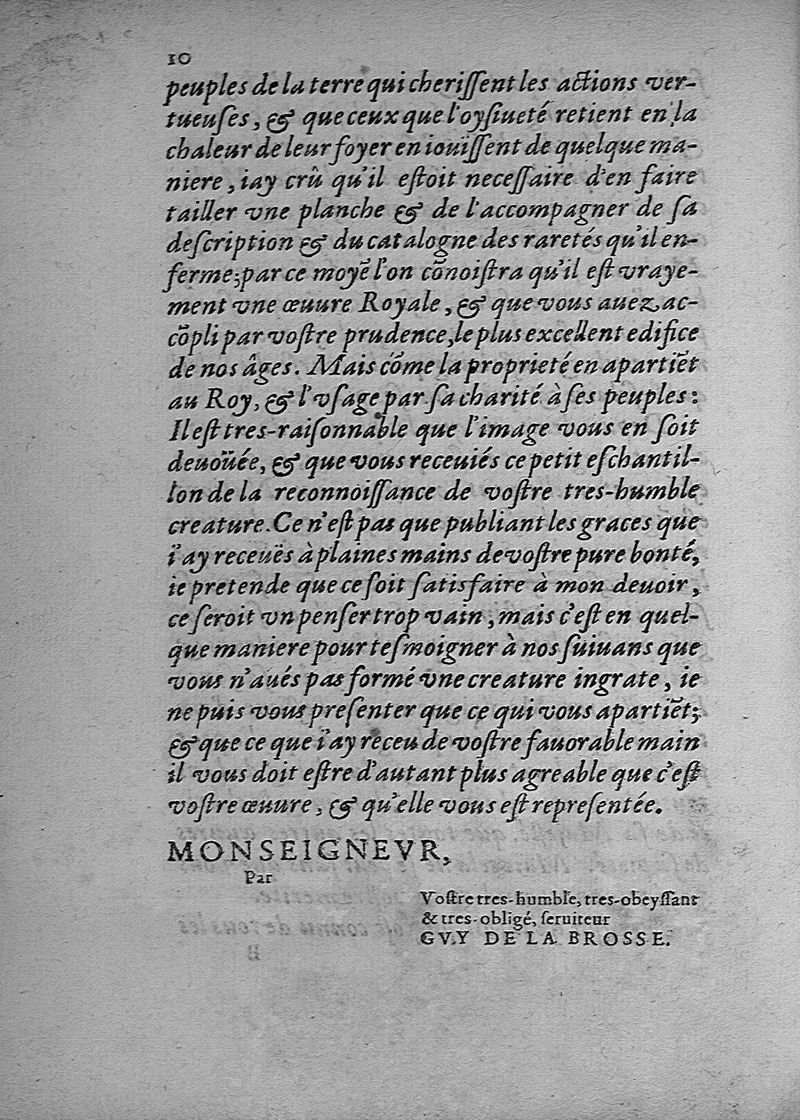 10
peuples de la terre qui cherissent les actions ver-
tueuses, & que ceux que l'oysiueté retient en la
chaleur de leur foyer en iouïssent de quelque ma-
niere, iay crû qu'il estoit necessaire d'en faire
tailler vne planche & de l'accompagner de sa
description & du catalogne des raretés qu'il en-
ferme; par ce moyẽ l'on cõnoistra qu'il est vraye-
ment vne œuure Royale, & que vous auez ac-
cõpli par vostre prudence, le plus excellent edifice
de nos âges. Mais cõme la proprieté en apartiẽt
au Roy, & l'vsage par sa charité à ses peuples:
Il est tres-raisonnable que l'image vous en soit
deuoüée, & que vous receuiés ce petit eschantil-
lon de la reconnoissance de vostre tres-humble
creature. Ce n'est pas que publiant les graces que
i'ay receuës à plaines mains de vostre pure bonté,
ie pretende que ce soit satisfaire à mon deuoir,
ce seroit vn penser trop vain, mais c'est en quel-
que maniere pour tesmoigner à nos suiuans que
vous n'aués pas formé vne creature ingrate, ie
ne puis vous presenter que ce qui vous apartiẽt;
& que ce que i'ay receu de vostre fauorable main
il vous doit estre d'autant plus agreable que c'est
vostre œuure, & qu'elle vous est representée.
MONSEIGNEVR,
Par
Vostre tres-humble, tres-obeyssant
& tres-obligé, seruiteur
GVY DE LA BROSSE.